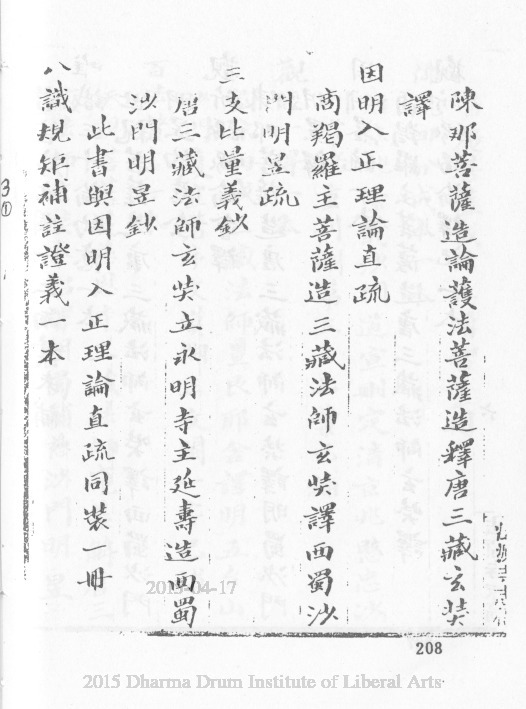 陳那菩薩造論護法菩薩造釋唐三藏玄奘
譯
因明入正理論直疏
商羯羅主菩薩造三藏法師玄奘譯西蜀沙
門明昱疏
三支比量義鈔
唐三藏法師玄奘立永明寺主延壽造西蜀
沙門明昱鈔
此書與因明入正理論直疏同裝 冊
八識規矩補註證義一本
3
①
2015-04-17
208
2015 Dharma Drum Institute of Liberal Arts